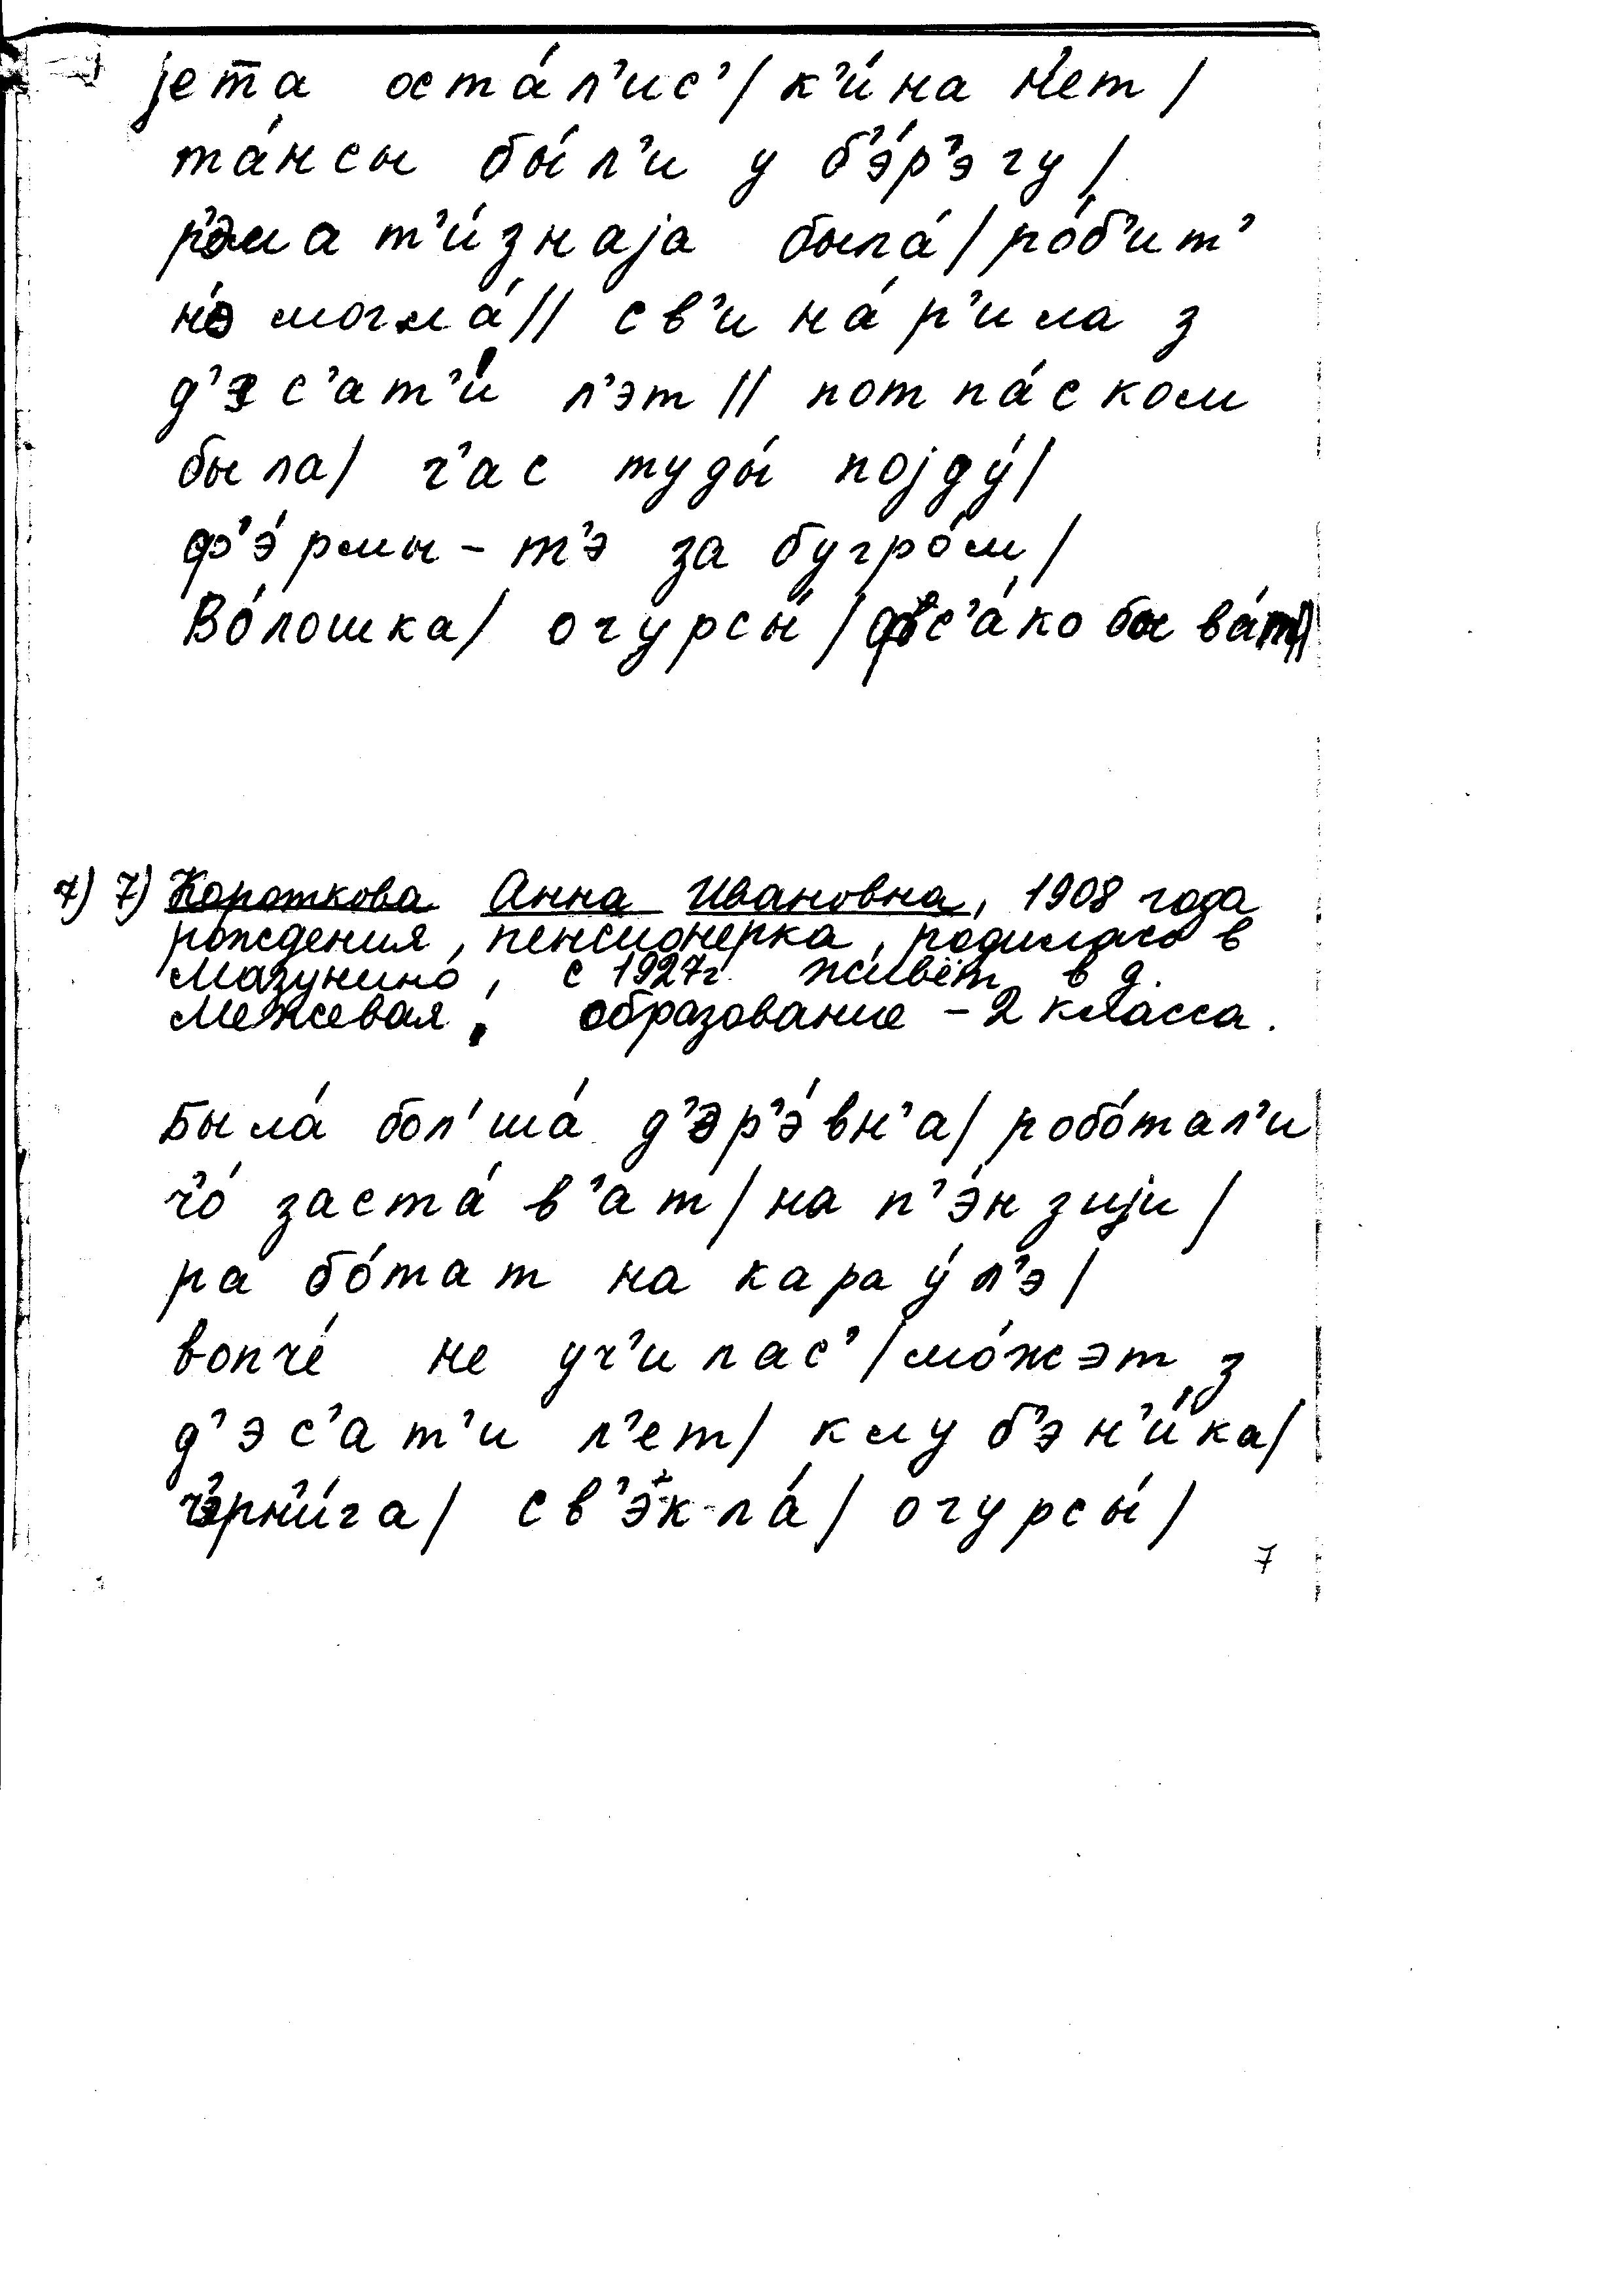 jета оста́л’ис’/ к’и́на н’ет/
та́нсы бы́л’и у б’э́р’эгу/
р’эмат’и́знаjа была́/ ро́б’ит’
н’э могла́// св’ина́р’ила з
д’эс’ат’и́ л’эт// потпа́ском
была/ ч’ас туды́ поjду́/
ф’э́рмы-т’э за бугро́м/
Во́лошка/ огурсы́/ фс’а́ко быва́т//
7) 7) Короткова Анна Ивановна, 1908 года
рождения, пенсионерка, родилась в
Мазунино, с 1927г. живёт в д.
Межевая, образование – 2 класса.
Была́ бол’ша́ д’эр’э́вн’а/ робо́тал’и
ч’о́ заста́в’ат/ на п’э́нзиjи/
рабо́тат на карау́л’э/
вопче́ не уч’илас’/ мо́жэт з
д’эс’ат’и л’ет/ клуб’эн’и́ка/
ч’эрн’и́га/ св’экла́/ огурсы́/
7